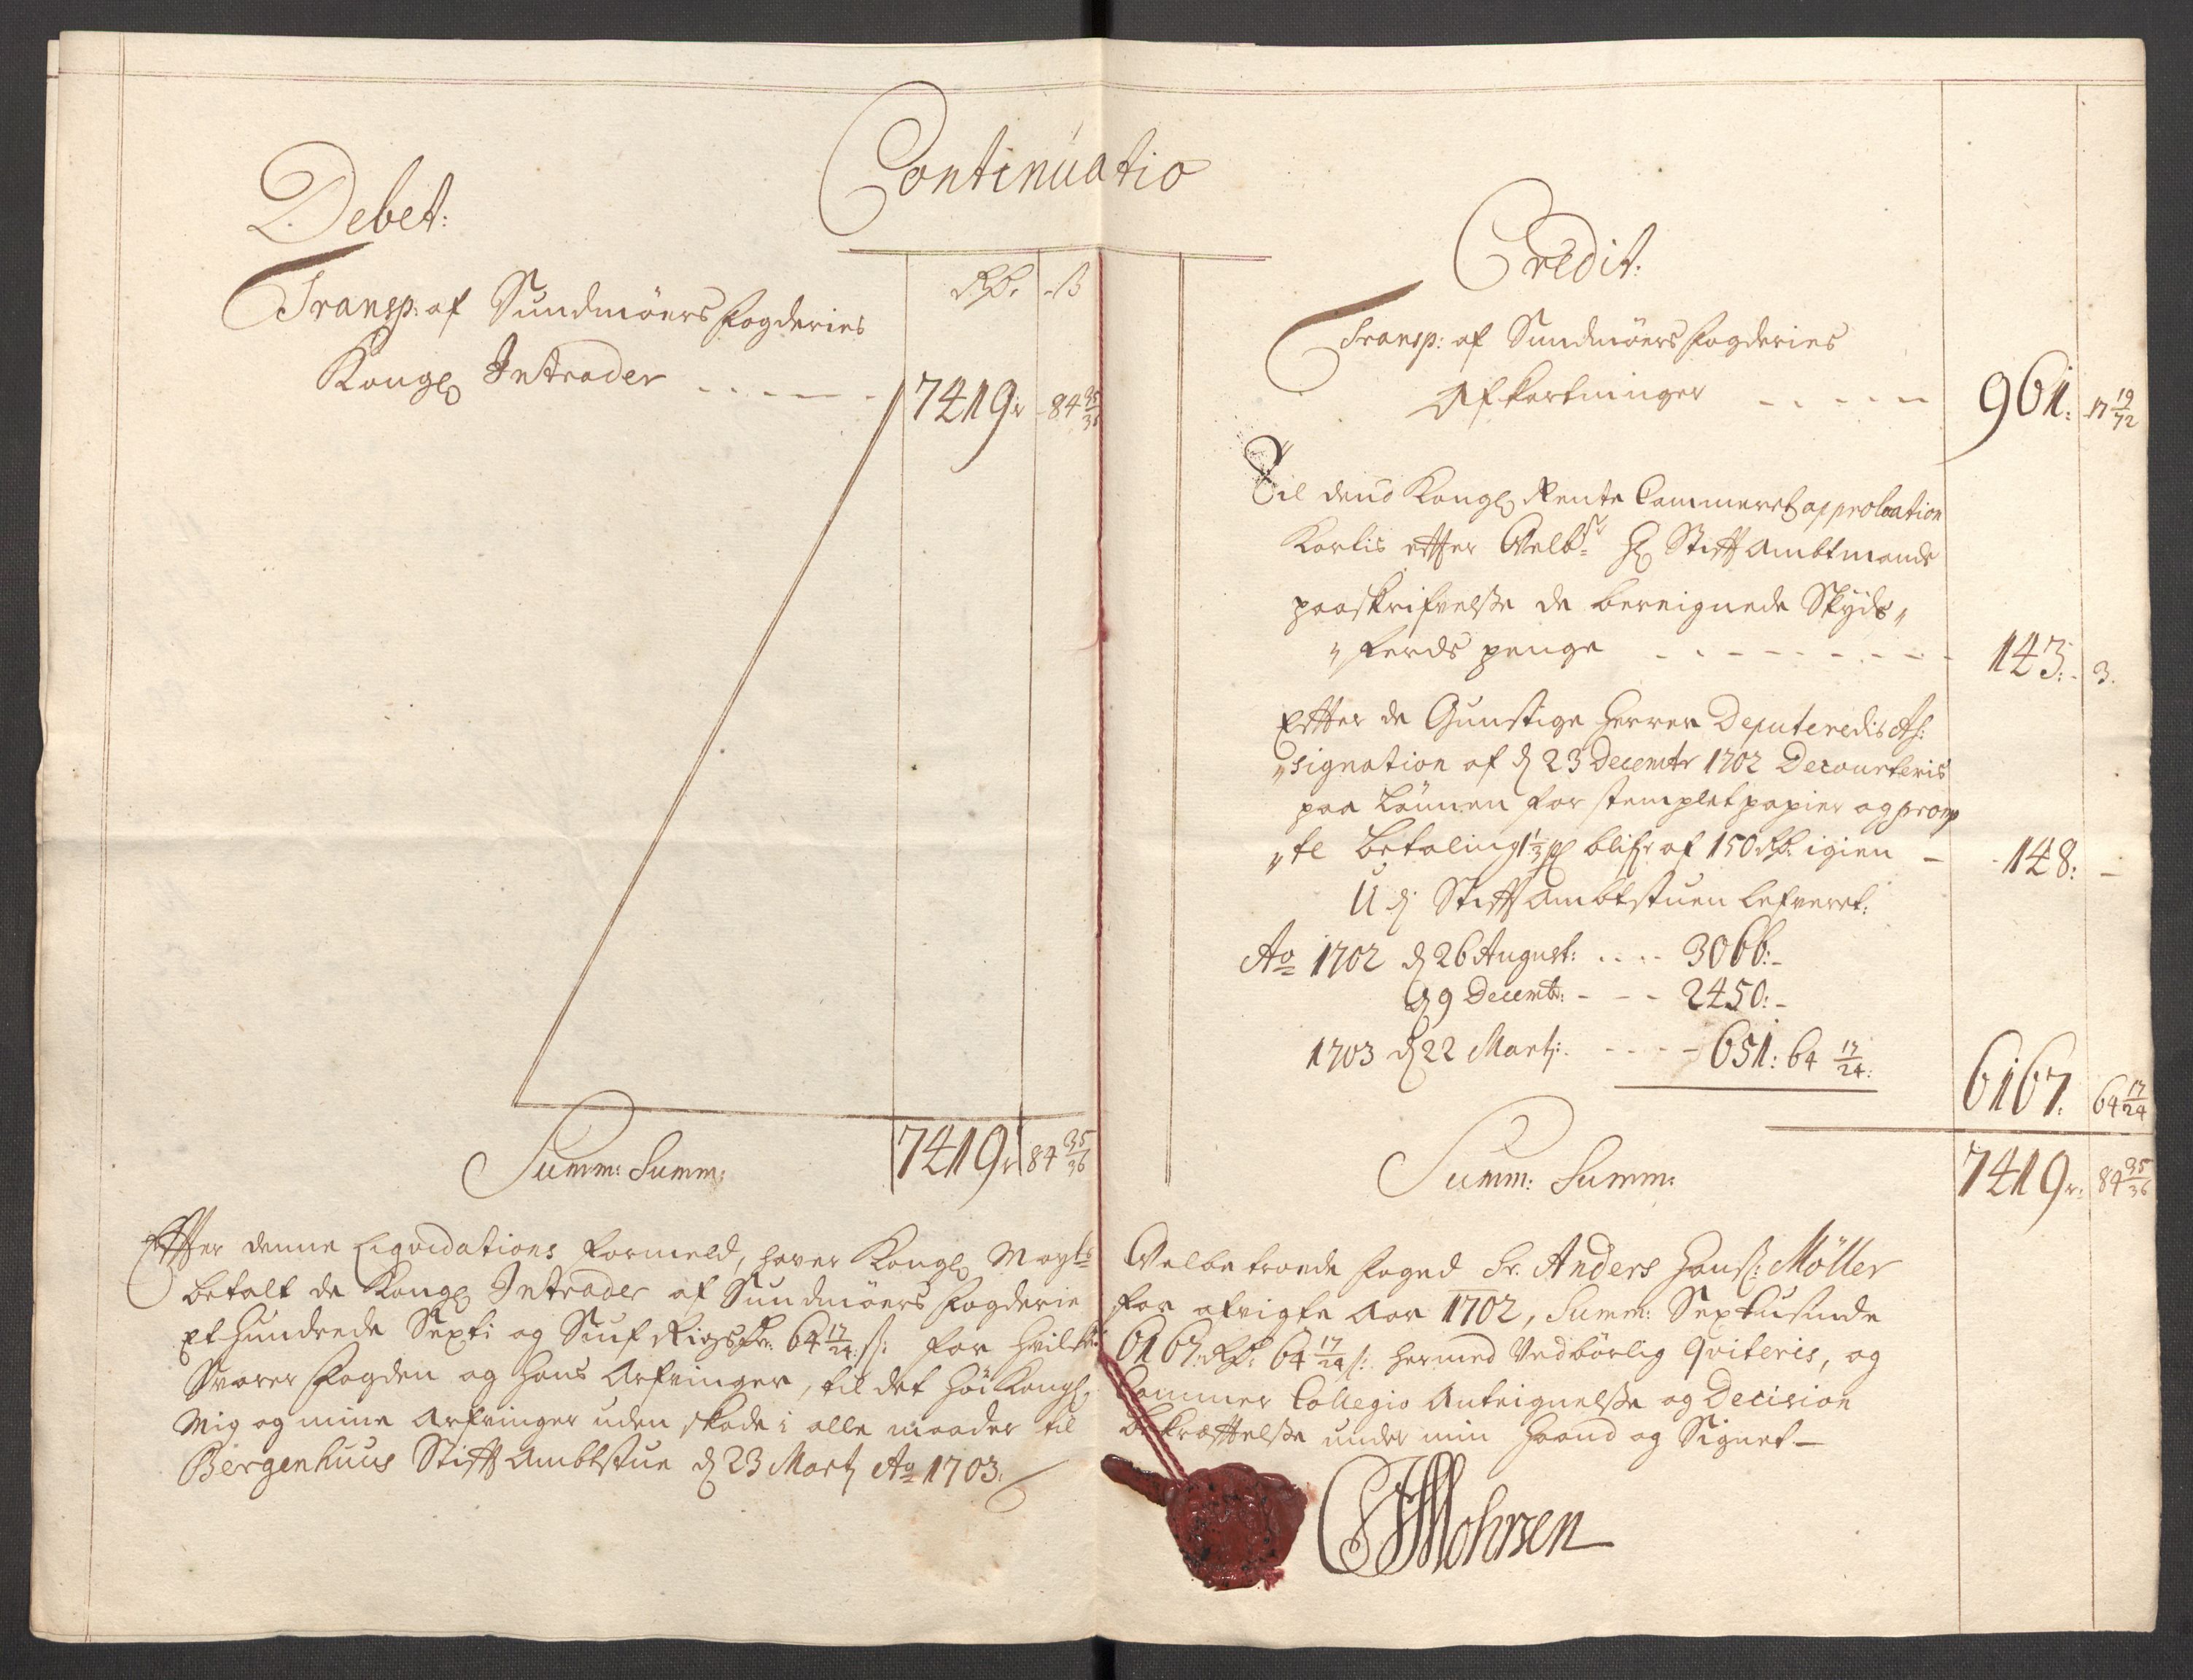 Continuatio
Debet:
Rd. ß
Transp: af Sundmöers fogderies
Kongl Intrader - - - - - 7419: 84 35/36
Summ: Summ: 7419: 84 35/36
Credit:
Transp: af Sundmöers fogderies
Afkortninger - - - - - 961: 17 19/72
Til dend Kongl Rente Cammerets approbation
Kortis efter Velb. H Stiftambtmands
paaskrifvelsse de bereignede Skyds„
„ferds penge - - - - - 143: 3.
Efter de Gunstige Herrer Deputeredis As:
„signation af d 23 Decembr 1702 Decourteris
paa Lönnen for stemplet papier og promp
„te betaling 1 1/3 blifr af 150 Rd. igien - 148: -
U di Stiftambtstuen lefveret:
Ao 1702 d 26 August: .... 3066:-
d 9 Decembr: - - - 2450:-
1703 d 22 Martj: - - - - 651: 64 17/24: 6167. 64 17/24
Summ: Summ: 7419: 84 35/36
Effter denne Liqvidations formeld, haver Kongl Mayts Velbetroede foged Sr. Anders Hanss: Möller
betalt de Kongl Intrader af Sundmöers fogderie for afvigte Aar 1702, Summ: Sextusinde
Et Hundrede Sexti og Siuf Rigsdr: 64 17/24 s: for hvilke 6167: Rd: 64 17/24 s: hermed Vedbörlig qviteris, og
Svarer fogden og hans Arfvinger, til det höi Kongl: Cammer Collegio Anteignelsse og Decision
Mig og mine Arfvinger uden skade i alle maader til bekræftelsse under min Haand og Signet -
Bergenhuus Stiftambtstue d 23 Martj Ao 1703.
Mohrsen